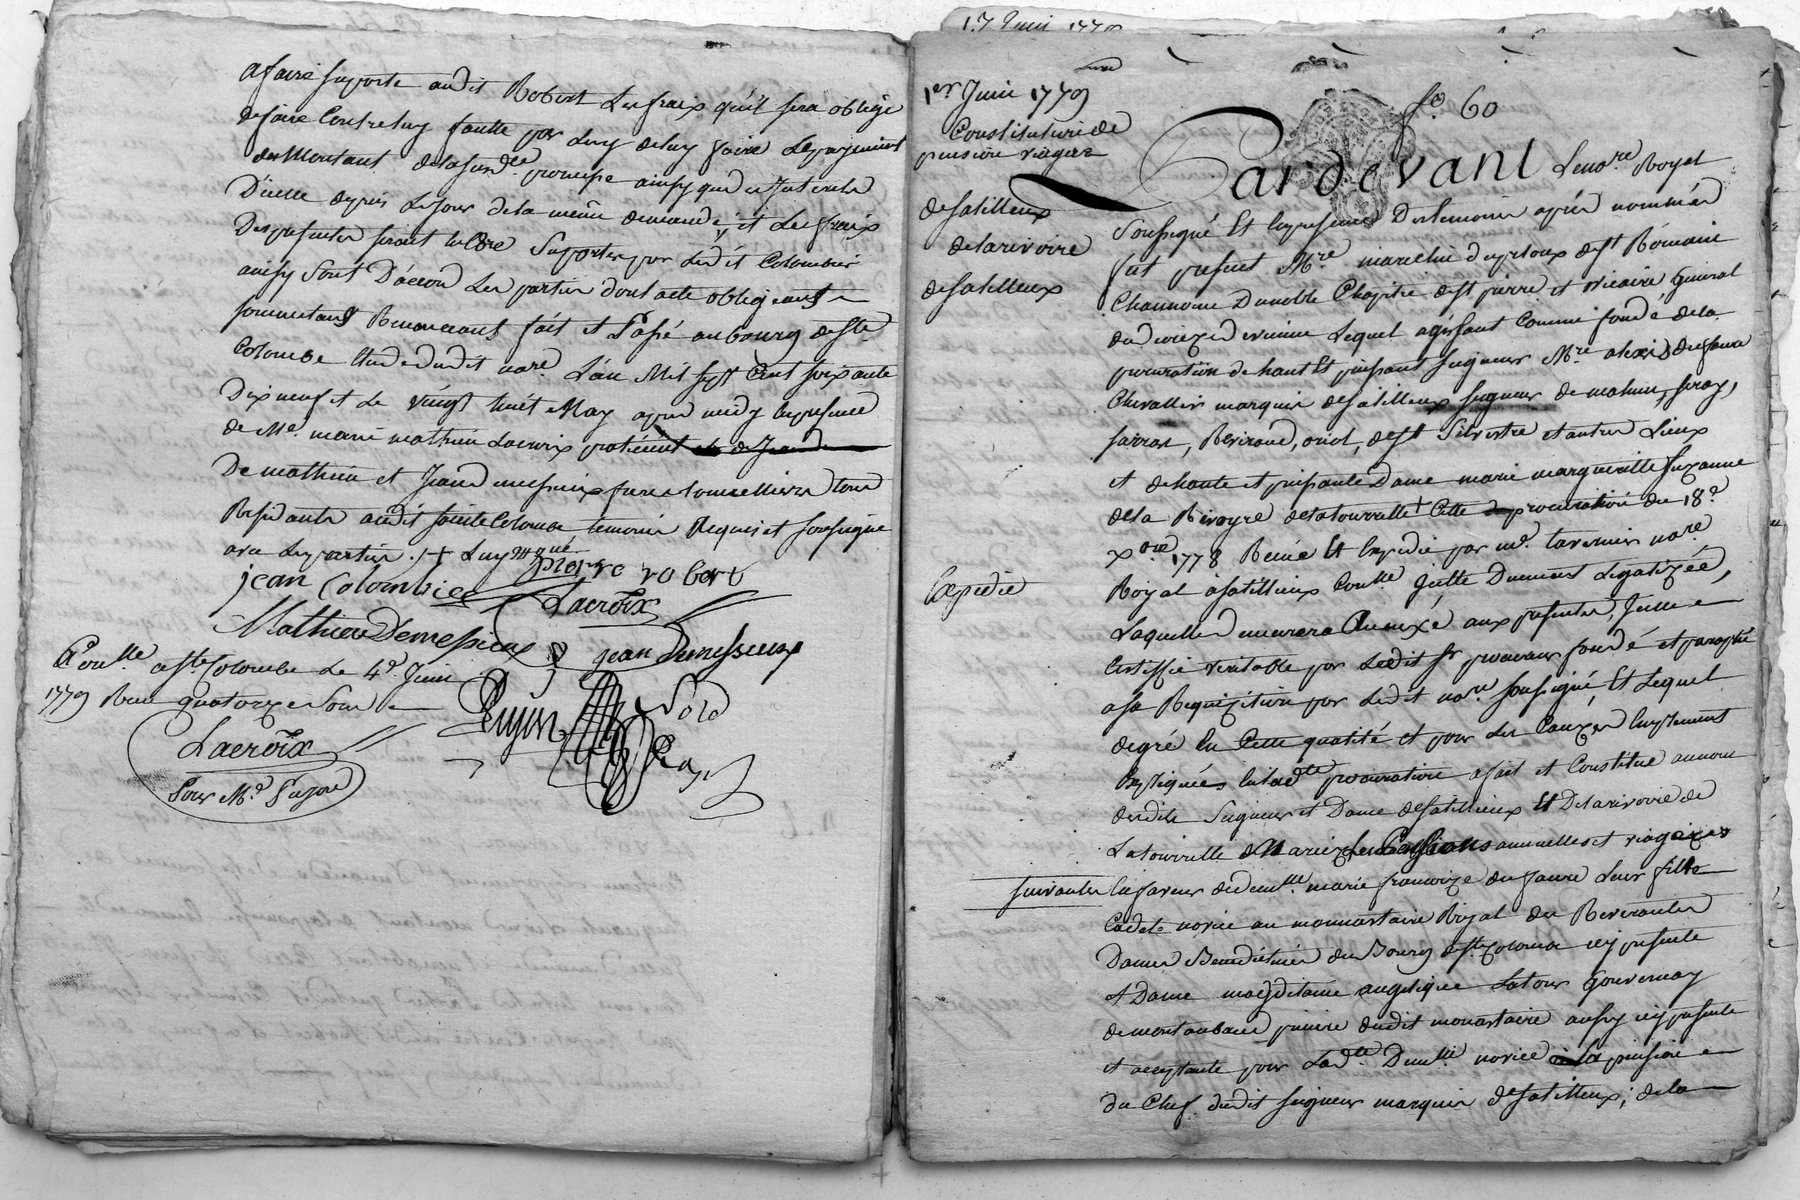 afaire suporte audit Robert Les fraix qu'il sera obligé
de faire Contre luy faulte par Luy de luy faire Le payement
du Montant de la susd.te promesse ainsy que des Interets
D'icelle depuis Le jour de la même demande, et Les fraix
Des presentes seront encore Suportes par Ledit Colombier
ainsy Sont D'acord Les parties dont acte obligeants
soumettans Renonceans fait et Passé au bourg de S.te
Colombe Etude dudit no.re L'an Mil sept Cent soixante
Dix neuf et Le vingt huit May apres midy En presence
de M.e marie mathieu Lacroix praticient
De mathieu et Jean messieux freres tonnelliers tous
Residants audit Sainte Colombe, temoins Requis et soussignés
avec Les parties
jean Colombier pierre robert
Lacroix
Mathieu Demessieux jean Demessieux
C.ollé a S.te Colombe Le 4.e Juin
1779 Reçu quatorze Sous
Lacroix
Pour M.e Pujon
Pujon
17 Juin 1779
1er Juin 1779
Constitution de
pension viagere
de Satilleux
de la rivoire
de Satilleux
f.o 60
Pardevant Le no.re Royal
Soussigné Et En presence Des temoins après nommés
fut present M.re marcelin dupeloux de S.t Romain
Chanoine Du noble Chapitre de S.t pierre et vicaire general
du dioceze de vienne Lequel agissant comme fondé de la
procuration de haut Et puissant Seigneur M.re alexis du faure
Chevallier marquis de Satilleux Seigneur de mahun, seray,
sarras, Reviraud, oriol, de S.t Silvestre et autres Lieux
et de haute et puissante Dame marie margueritte Suzanne
de la Rivoyre de la tourrette; Cette procuration du 18.e
x.bre 1778 Reçüe Et Expedié par M.e tavernier no.re
Royal a Satilleux Con.llé Dument Legalizée,
Expedié
Laquelle demeurera annexé aux presentes,
Certiffié veritable par Ledit S.r procureur fondé et paraphé
a sa Requizition par Ledit no.re soussigné, Et Lequel
de gré En Cette qualité et pour Les Cauzes amplement
Expliquées En lad.te procuration a fait et Constitué au nom
desdits Seigneur et Dame de Satilleux Et De la rivoire de
La tourrette Les Pensions annuelles et viageres
suivantes En faveur de dem.lle marie françoize du faure Leur fille
Cadete novice au monnastaire Royal des Reverantes
Dames Benedictines du Bourg de S.te Colombe icy presente
et Dame magdelaine angelique Latour Gouvernay
de montauban prieure dudit monastaire aussy icy presente
et acceptante pour Lad.te Dem.lle novice La pension
du Chef dudit seigneur marquis de Satilleux; de la